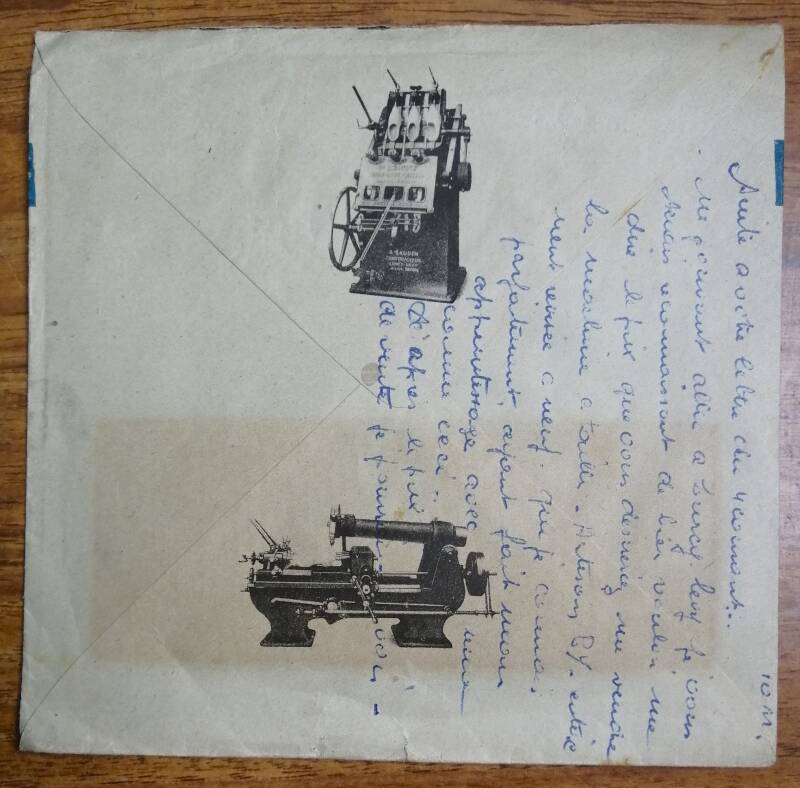 Suite a votre lettre du 4 courant..
. Ne pouvant aller a Lurcy. Levy je vous
serais reconnaissant de bien vouloir me
dire le prix que vous désirez me vendre
la machine a tailler. Artisan
ment revisée a neuf. que je connais
parfaitement, ayant fait mon
apprentissage avec une
comme ceci..
D'apres le prix
de vente je vous -
10 M.
A. SAUDIN
CONSTRUCTEUR
LURCY-LEVY